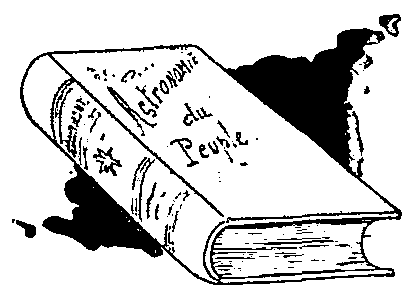 Astronomie
du
Peuple